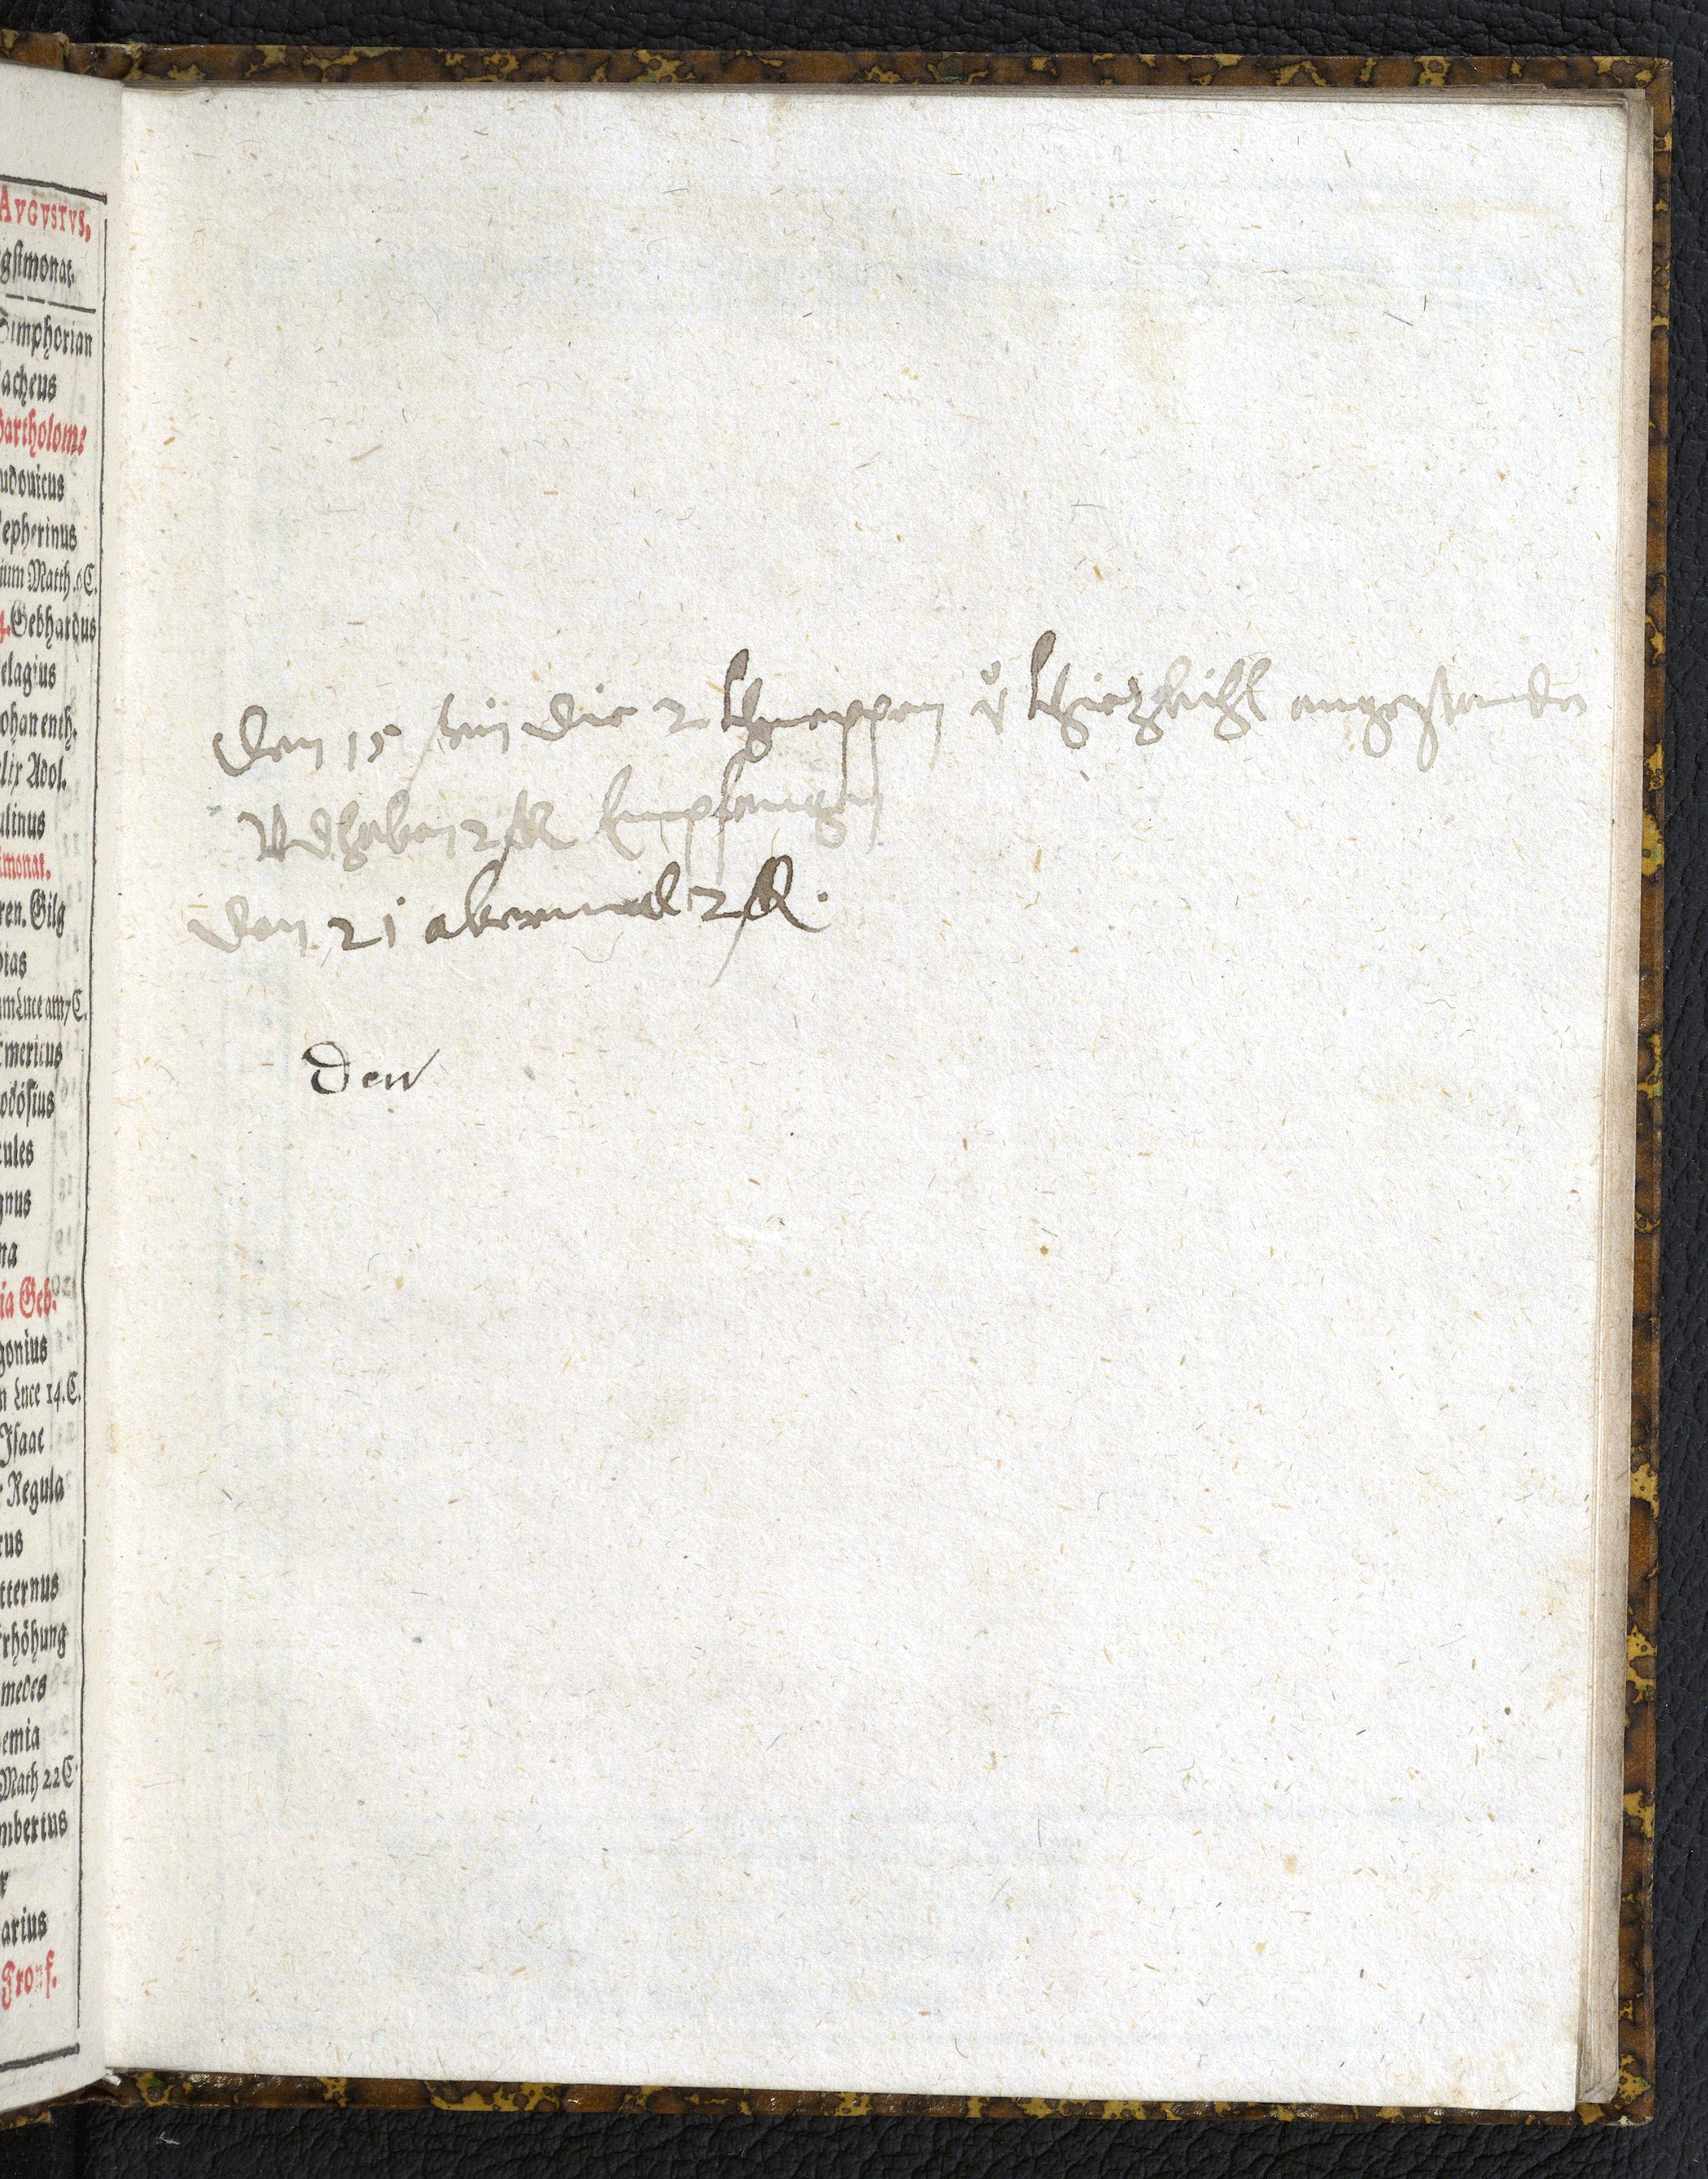 AVGVSTVS.
gstmonat.
Simphorian
acheus
Bartholome
udouicus
epherinus
ium Matth. 6 C.
Gebhardus
elagius
ohan enth.
elix Adol.
ulinus
tmonat.
ren. Gilg
bias
um Luce am 7 C.
Emericus
odósius
cules
gnus
na
ia Geb.
gonius
n Luce 14. C.
Isaac
r Regula
rus
tternus
Erhöhung
medes
emia
Math 22 C
mbertus
r
arius
Fronf.
Den 15 sein die 2 angestanden
Vnd haben 2 fl Empfangen
Den 21 abermal 2 fl.
Den